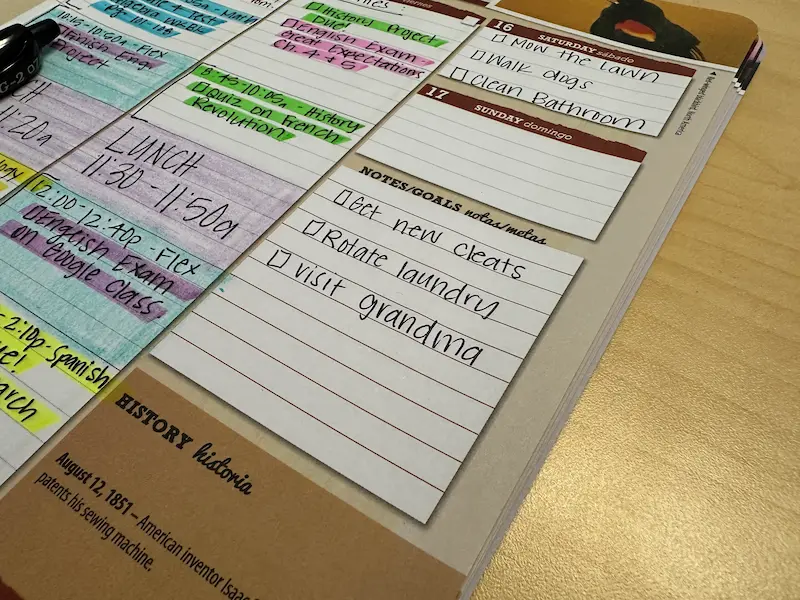 Algebra
10:45-10:60a-Flex
English Eng
Project
20a
History Project
Due!
English Exam
Great Expectations
Ch. 4 & 5
8:45-10:00a-History
Quiz on French
Revolution
LUNCH
11:30-11:50a
12:00-12:40p-Flex
English Exam
on Google Class
2:10p-Spanish
16 SATURDAY sábado
Mow the lawn
Walk dogs
Clean Bathroom
17 SUNDAY domingo
NOTES/GOALS notas/metas
Get new cleats
Rotate laundry
visit grandma
HISTORY historia
August 12, 1851 – American inventor Isaac
patents his sewing machine.
G-2 07